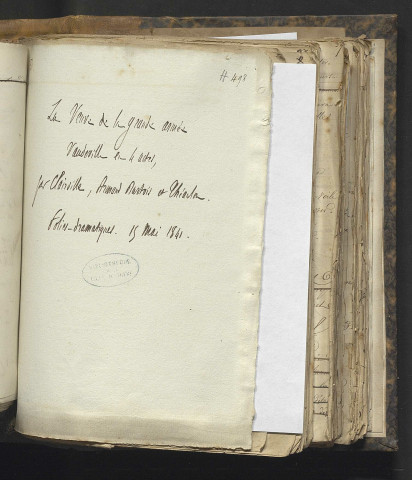 H 498
La Veuve de la grande armée
Vaudeville en 4 actes,
par Clairville, Armand Dartois et
Folies-dramatiques. 15 Mai 1841.